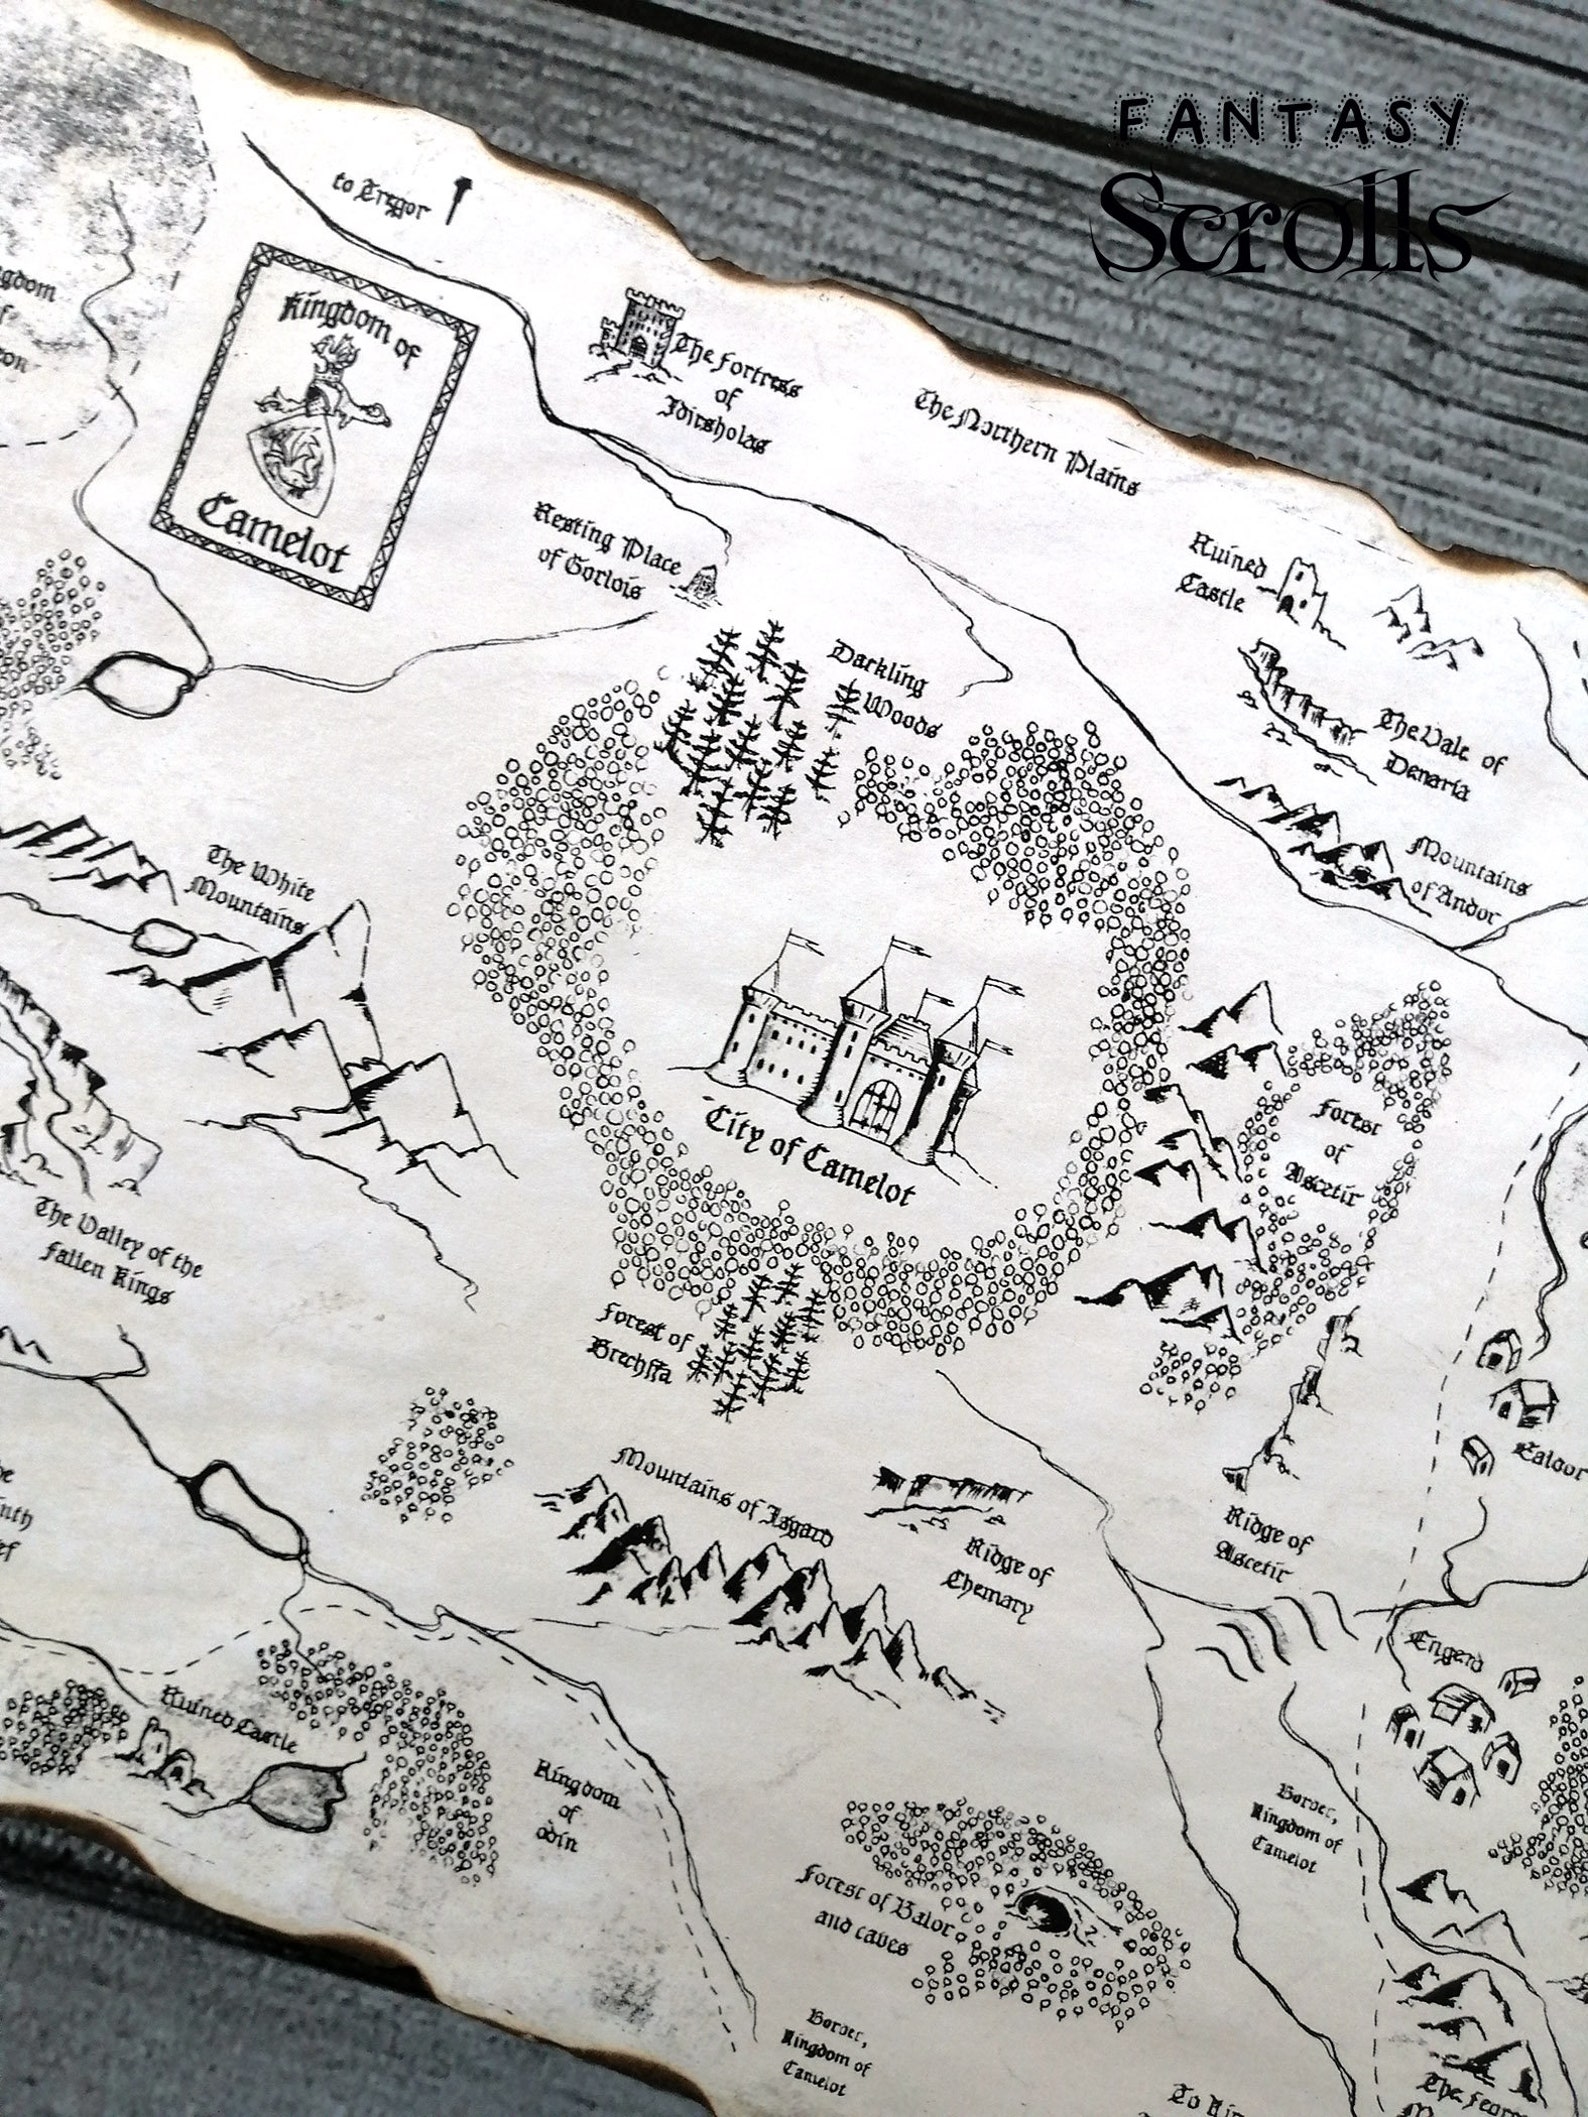 FANTASY
Scrolls
to Tregor
Kingdom of
Camelot
The Fortress
of
Idirsholas
The Northern Plains
Resting Place
of Gorlois
Ruined
Castle
Darkling
Woods
The Vale of
Denaria
Mountains
of Andor
The White
Mountains
City of Camelot
Forest
of
Ascetir
The Valley of the
Fallen Kings
Forest of
Brechffa
Mountains of Isgard
Ridge of
Chemary
Ridge of
Ascetir
Ealdor
Engerd
Ruined Castle
Kingdom
of
Odin
Border,
Kingdom of
Camelot
Forest of Balor
and caves
Border,
Kingdom of
Camelot